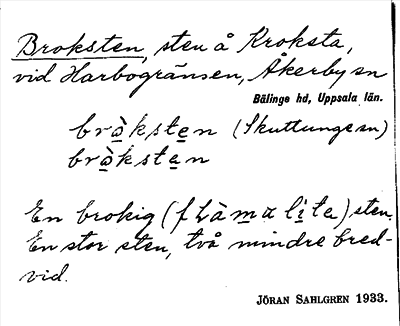 Broksten, sten å Kroksta,
vid Harbogränsen, Åkerby sn
Bälinge hd, Uppsala län.
bràksten (Skuttunge sn)
bràksten
En brokig (flàmalite) sten.
En stor sten, två mindre bred-
vid.
JÖRAN SAHLGREN 1933.